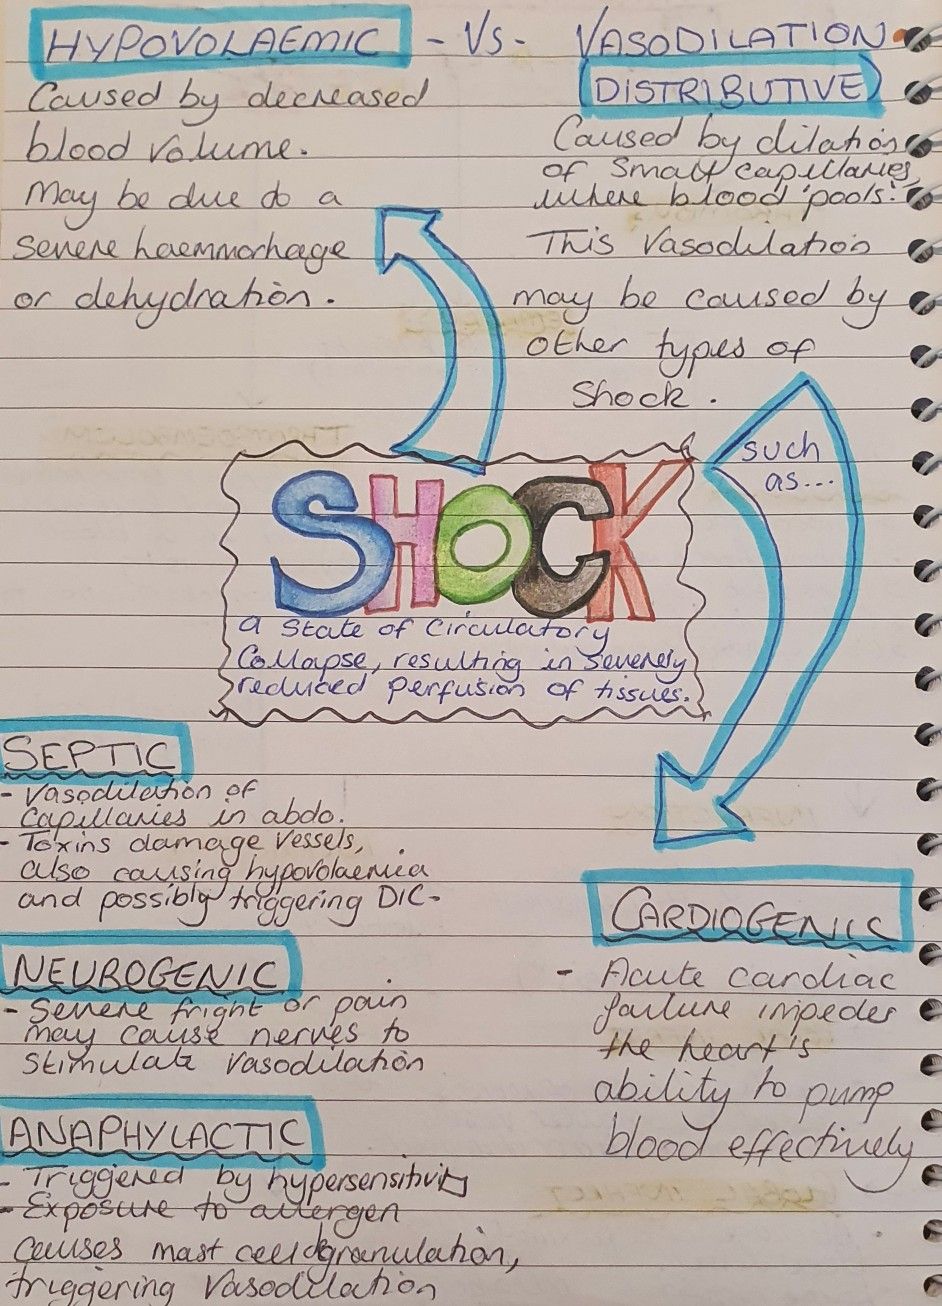 HYPOVOLAEMIC - Vs - VASODILATION
(DISTRIBUTIVE)
Caused by decreased
blood volume.
May be due to a
severe haemmorhage
or dehydration.
Caused by dilation
of small capillaries,
where blood 'pools'.
This vasodilation
may be caused by
other types of
shock.
such
as...
SHOCK
a state of circulatory
collapse, resulting in severely
reduced perfusion of tissues.
SEPTIC
- Vasodilation of
capillaries in abdo.
- Toxins damage vessels,
also causing hypovolaemia
and possibly triggering DIC-
NEUROGENIC
- Severe fright or pain
may cause nerves to
stimulate vasodilation
ANAPHYLACTIC
- Triggered by hypersensitivity
- Exposure to allergen
causes mast cell degranulation,
triggering vasodilation
CARDIOGENIC
- Acute cardiac
failure impedes
the heart's
ability to pump
blood effectively